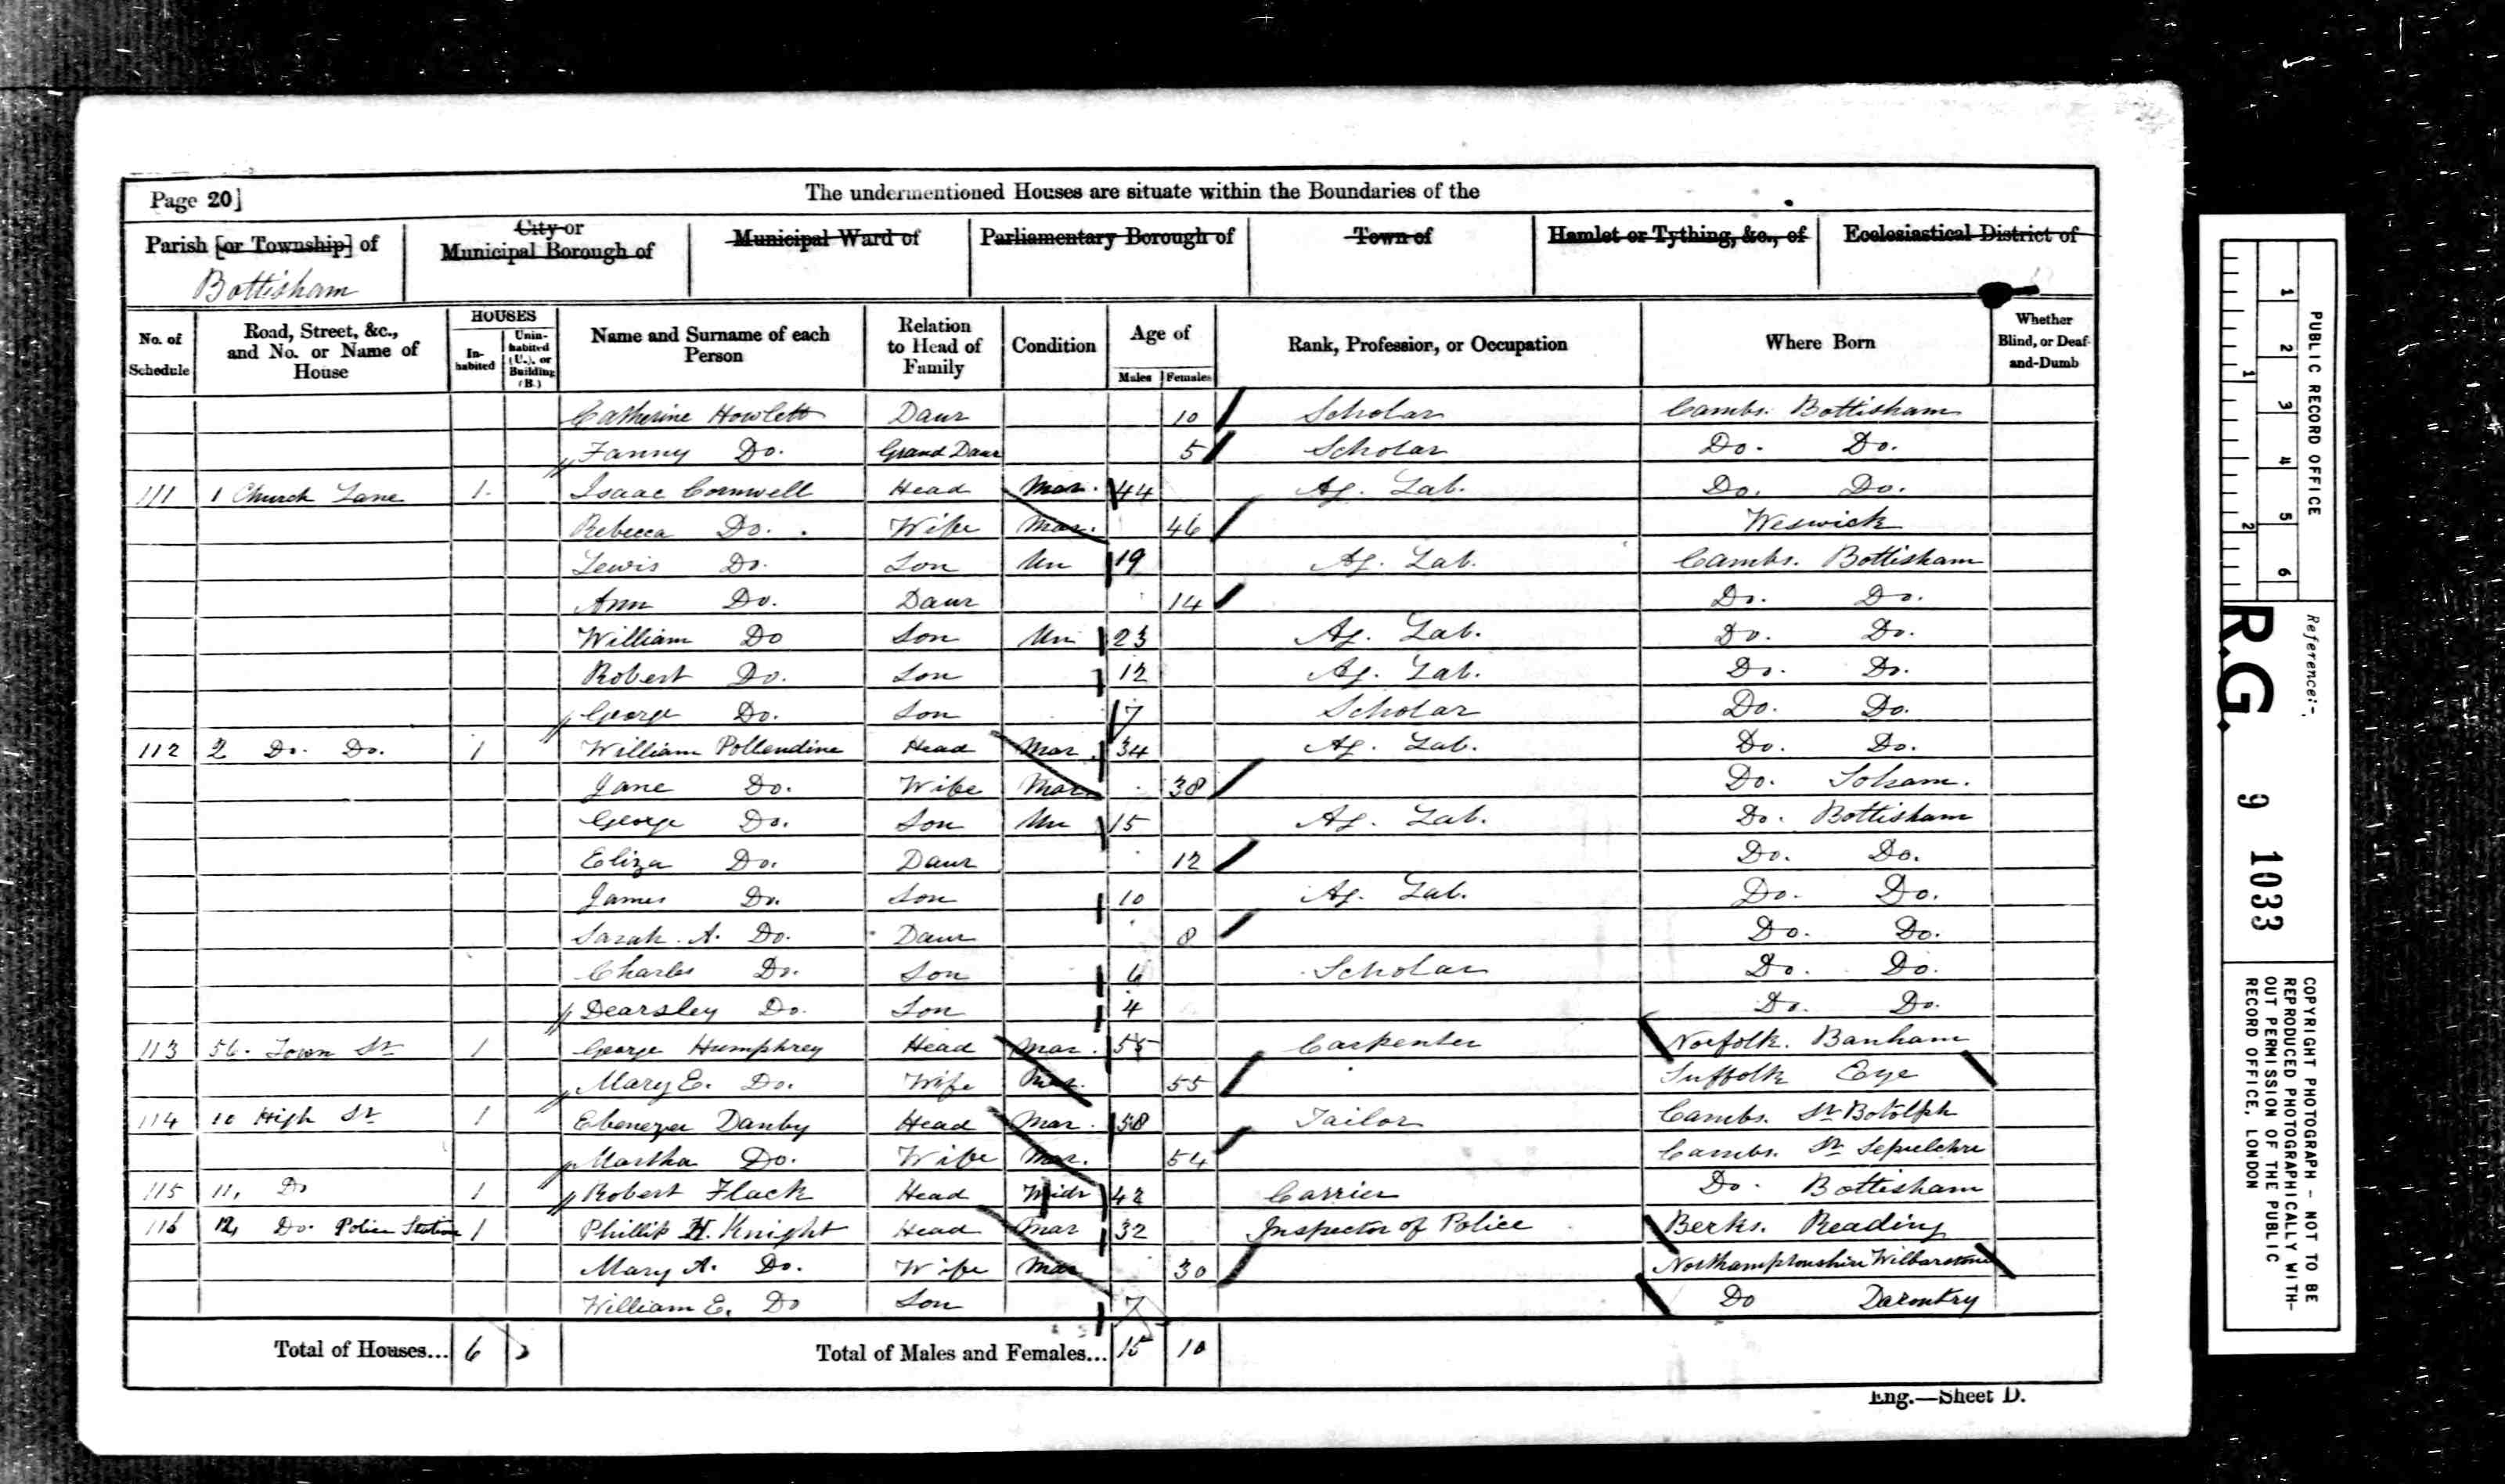 Page 20]
The undermentioned Houses are situate within the Boundaries of the
Parish [or Township] of
Bottisham
City or Municipal Borough of
Municipal Ward of
Parliamentary Borough of
Town of
Hamlet or Tything, &c., of
Ecclesiastical District of
No. of Schedule
Road, Street, &c., and No. or Name of House
HOUSES
In-habited
Unin-habited (U.), or Building (B.)
Name and Surname of each Person
Relation to Head of Family
Condition
Age of
Males
Females
Rank, Profession, or Occupation
Where Born
Whether Blind, or Deaf-and-Dumb
Catherine Howlett Daur 10 Scholar Cambs. Bottisham
Fanny Do. Grand Daur 5 Scholar Do. Do.
111 1 Church Lane 1 Isaac Cornwell Head Mar. 44 Ag. Lab. Do. Do.
Rebecca Do. Wife Mar. 46 Weswick
Lewis Do. Son Un 19 Ag. Lab. Cambs. Bottisham
Ann Do. Daur 14 Do. Do.
William Do Son Un 23 Ag. Lab. Do. Do.
Robert Do. Son 12 Ag. Lab. Do. Do.
George Do. Son 7 Scholar Do. Do.
112 2 Do. Do. 1 William Pollendine Head Mar. 34 Ag. Lab. Do. Do.
Jane Do. Wife Mar. 38 Do. Soham.
George Do. Son Un 15 Ag. Lab. Do. Bottisham
Eliza Do. Daur 12 Do. Do.
James Do. Son 10 Ag. Lab. Do. Do.
Sarah A. Do. Daur 8 Do. Do.
Charles Do. Son 6 Scholar Do. Do.
Dearsley Do. Son 4 Do. Do.
113 56. Town St 1 George Humphrey Head Mar. 55 Carpenter Norfolk. Banham
Mary E. Do. Wife Mar. 55 Suffolk Eye
114 10 High St 1 Ebenezer Danby Head Mar. 58 Tailor Cambs. St Botolph
Martha Do. Wife Mar. 54 Cambs. St Sepulchre
115 11, Do 1 Robert Flack Head Widr 42 Carrier Do. Bottisham
116 12, Do. Police Station 1 Phillip H. Knight Head Mar 32 Inspector of Police Berks. Reading
Mary A. Do. Wife Mar 30 Northamptonshire Wilbarstone
William E. Do Son 7 Do Daventry
Total of Houses... 6
Total of Males and Females... 15 10
Eng.—Sheet D.
PUBLIC RECORD OFFICE
1 2 3 4 5 6
1 2
Reference:-
R.G. 9 1033
COPYRIGHT PHOTOGRAPH - NOT TO BE
REPRODUCED PHOTOGRAPHICALLY WITH-
OUT PERMISSION OF THE PUBLIC
RECORD OFFICE, LONDON